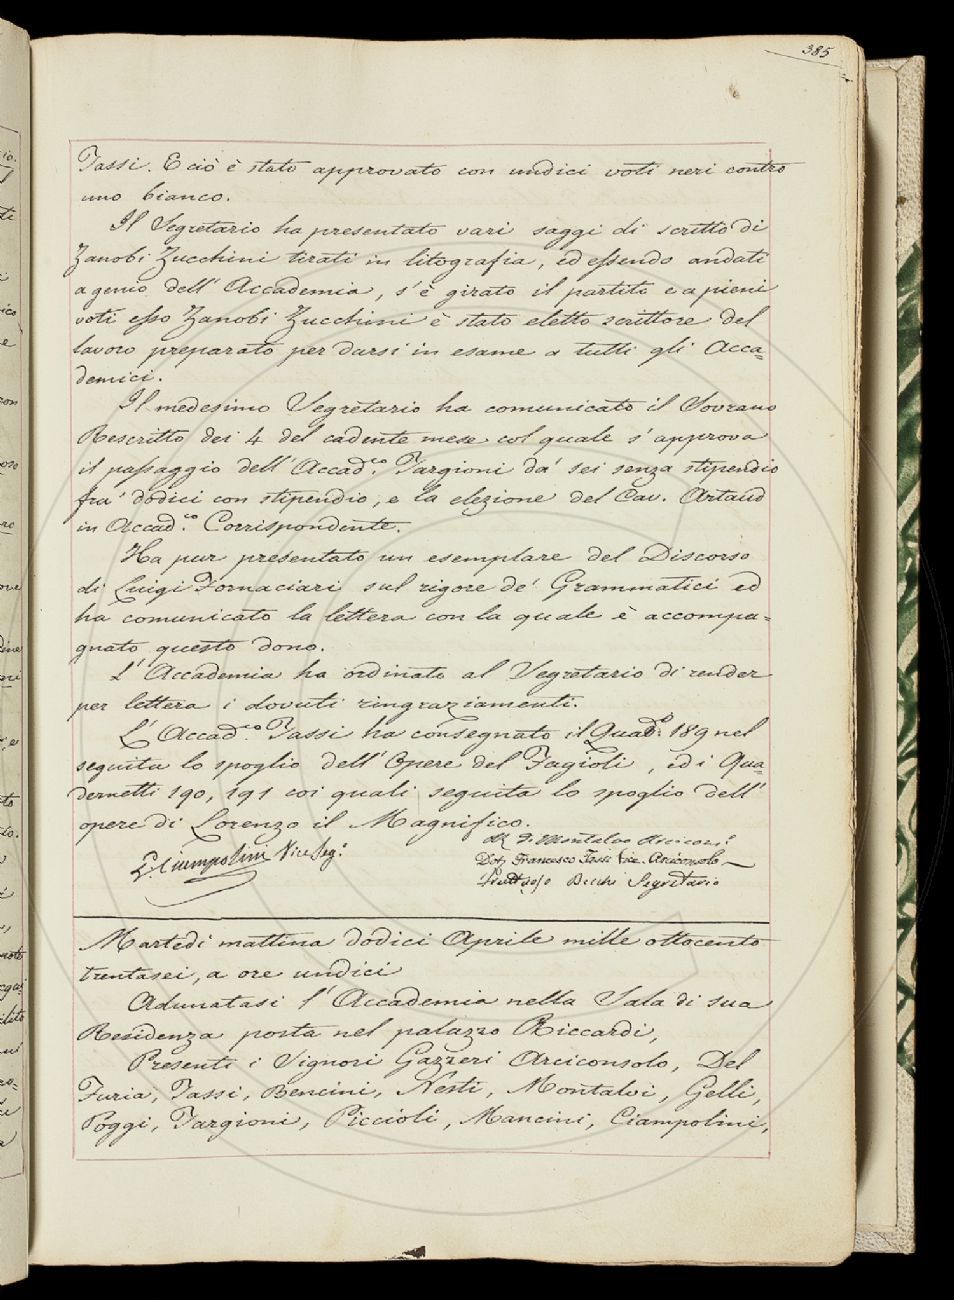 385
Tassi. E ciò è stato approvato con undici voti neri contro
uno bianco.
Il Segretario ha presentato vari saggi di scritto di
Zanobi Zucchini tirati in litografia, ed essendo andati
a genio dell' Accademia, s'è girato il partito e a pieni
voti esso Zanobi Zucchini è stato eletto scrittore del
lavoro preparato per darsi in esame a tutti gli Acca=
demici.
Il medesimo Segretario ha comunicato il Sovrano
Rescritto dei 4 del cadente mese col quale s'approva
il passaggio dell' Accad.co Targioni da' sei senza stipendio
fra' dodici con stipendio, e la elezione del Cav. Artaud
in Accad.co Corrispondente.
Ha pur presentato un esemplare del Discorso
di Luigi Fornaciari sul rigore de' Grammatici ed
ha comunicato la lettera con la quale è accompa=
gnato questo dono.
L' Accademia ha ordinato al Segretario di render
per lettera i dovuti ringraziamenti.
L' Accad.co Tassi ha consegnato il Quad.o 189 nel
seguita lo spoglio dell' Opere del Fagioli, ed i Qua=
dernetti 190, 191 coi quali seguita lo spoglio dell'
opere di Lorenzo il Magnifico.
Montalvo Arcicons.o
Ciampolini Vice Seg.o
Dot. Francesco Tassi Vice. Arciconsolo
Fruttuoso Becchi Segretario
Martedì mattina dodici Aprile mille ottocento
trentasei, a ore undici
Adunatasi l' Accademia nella Sala di sua
Residenza posta nel palazzo Riccardi,
Presenti i Signori Gazzeri Arciconsolo, Del
Furia, Tassi, Bencini, Nesti, Montalvi, Gelli,
Poggi, Targioni, Piccioli, Mancini, Ciampolini,